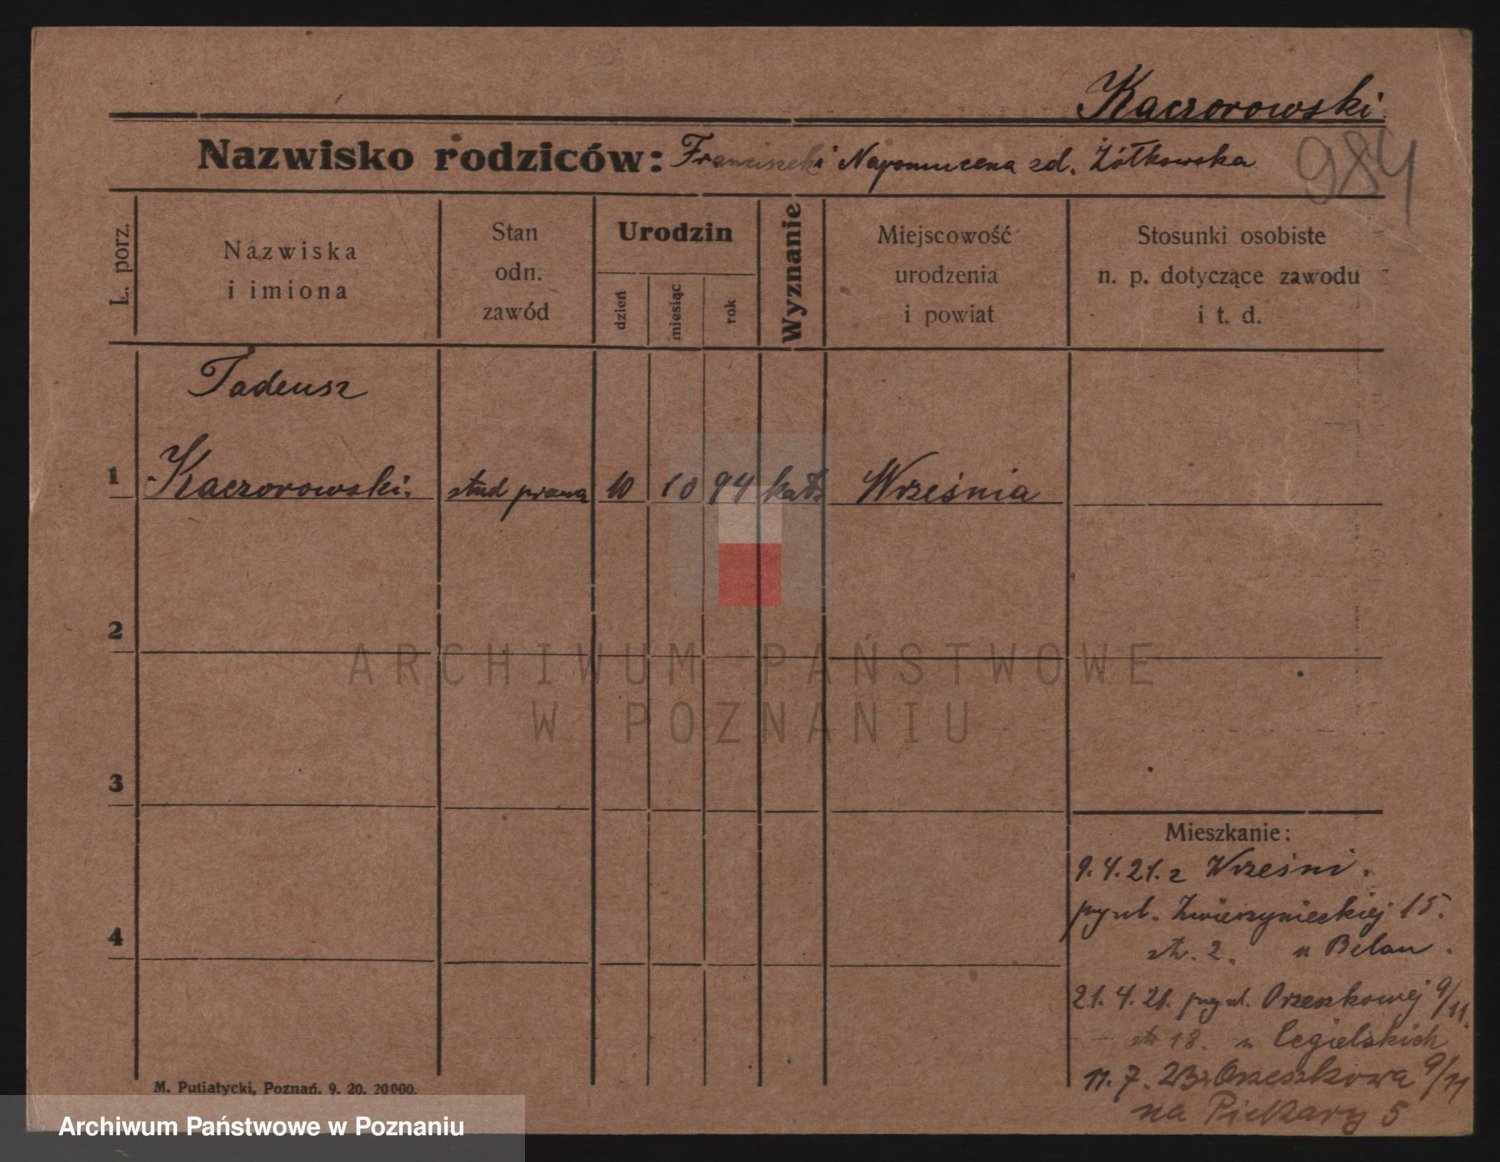 Kaczorowski
Nazwisko rodziców: Franciszek i Nepomucena zd. Żółkowska
984
L. porz.
Nazwiska
i imiona
Stan
odn.
zawód
Urodzin
dzień
miesiąc
rok
Wyznanie
Miejscowość
urodzenia
i powiat
Stosunki osobiste
n. p. dotyczące zawodu
i t. d.
Tadeusz
1 Kaczorowski. stud prawa 10 10 94 kat. Września
2
3
4
ARCHIWUM PAŃSTWOWE
W POZNANIU
Mieszkanie:
9.4.21. z Wrześni.
przy ul. Zwierzynieckiej 15.
str. 2. u Belau.
21.4.21. przy ul. Orzeszkowej 9/11.
str 18. u Cegielskich
11.7.23 z Orzeszkowa 9/11
na Piekary 5
M. Putiatycki, Poznań. 9. 20. 20000.
Archiwum Państwowe w Poznaniu